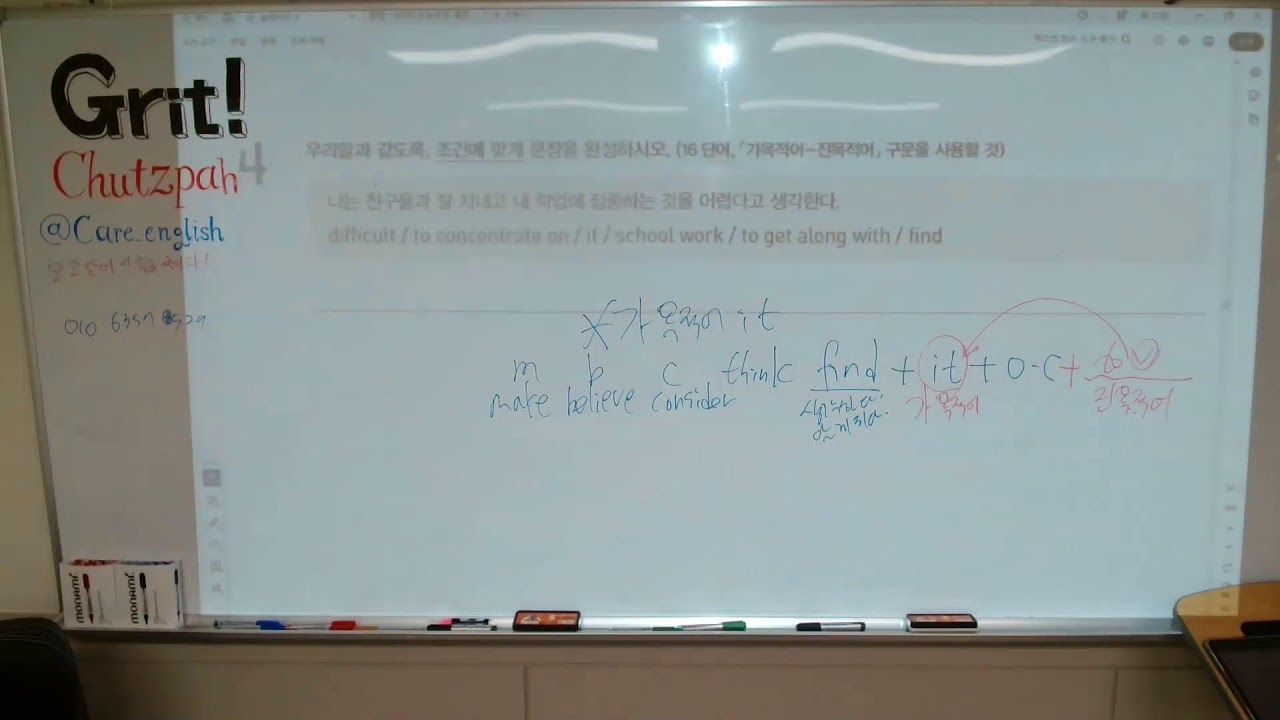 Grit!
Chutzpah
@Care_english
4
우리말과 같도록, 조건에 맞게 문장을 완성하시오. (16 단어, 「가목적어-진목적어」 구문을 사용할 것)
나는 친구들과 잘 지내고 내 학업에 집중하는 것을 어렵다고 생각한다.
difficult / to concentrate on / it / school work / to get along with / find
가 목적어 it
m b c think find + it + O·C + to
make believe consider
가 목적어 진 목적어
monami monami